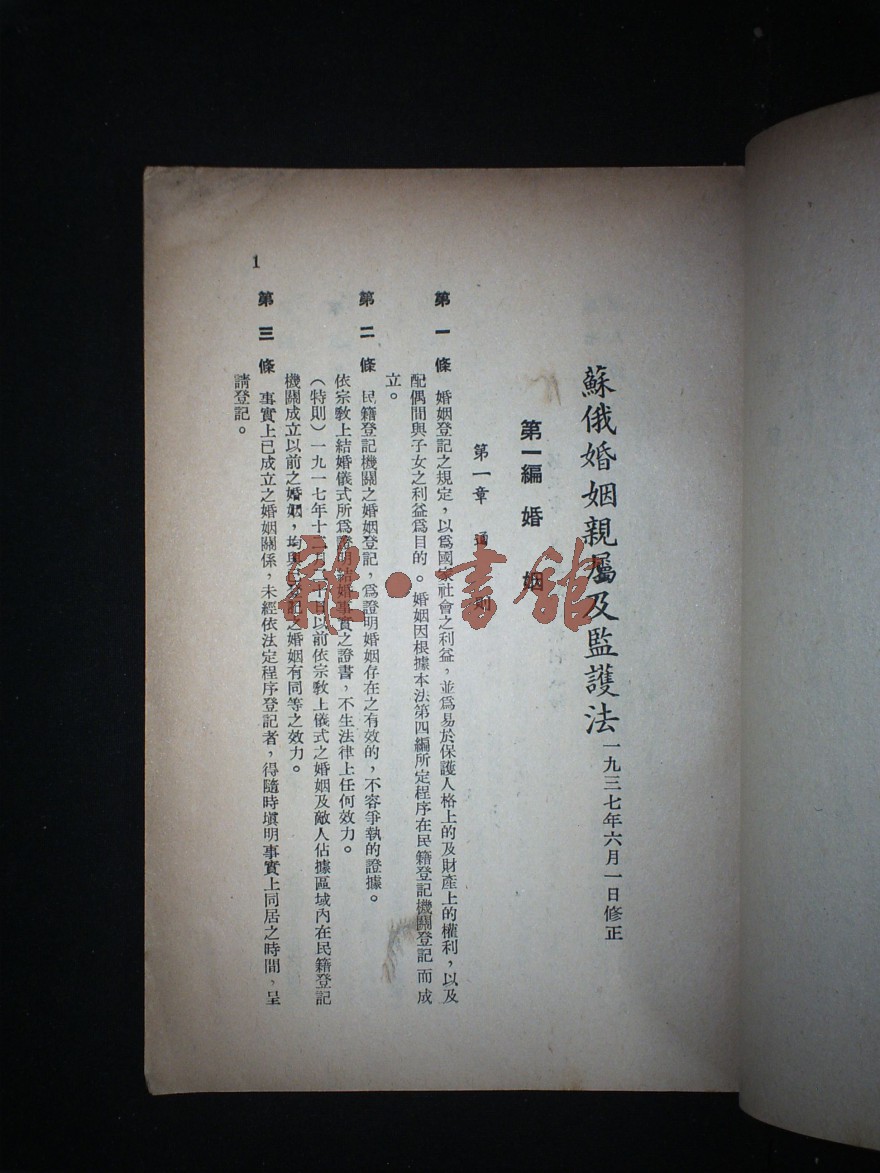 蘇俄婚姻親屬及監護法一九三七年六月一日修正
第一編 婚 姻
第一章 通 則
第 一 條 婚姻登記之規定，以爲國家社會之利益，並爲易於保護人格上的及財產上的權利，以及
配偶間與子女之利益爲目的。婚姻因根據本法第四編所定程序在民籍登記機關登記而成
立。
第 二 條 民籍登記機關之婚姻登記，爲證明婚姻存在之有效的，不容爭執的證據。
依宗敎上結婚儀式所爲證明結婚事實之證書，不生法律上任何效力。
（特則）一九一七年十二月二十日以前依宗敎上儀式之婚姻及敵人佔據區域內在民籍登記
機關成立以前之婚姻，均與已登記之婚姻有同等之效力。
第 三 條 事實上已成立之婚姻關係，未經依法定程序登記者，得隨時塡明事實上同居之時間，呈
請登記。
1
雜·書館